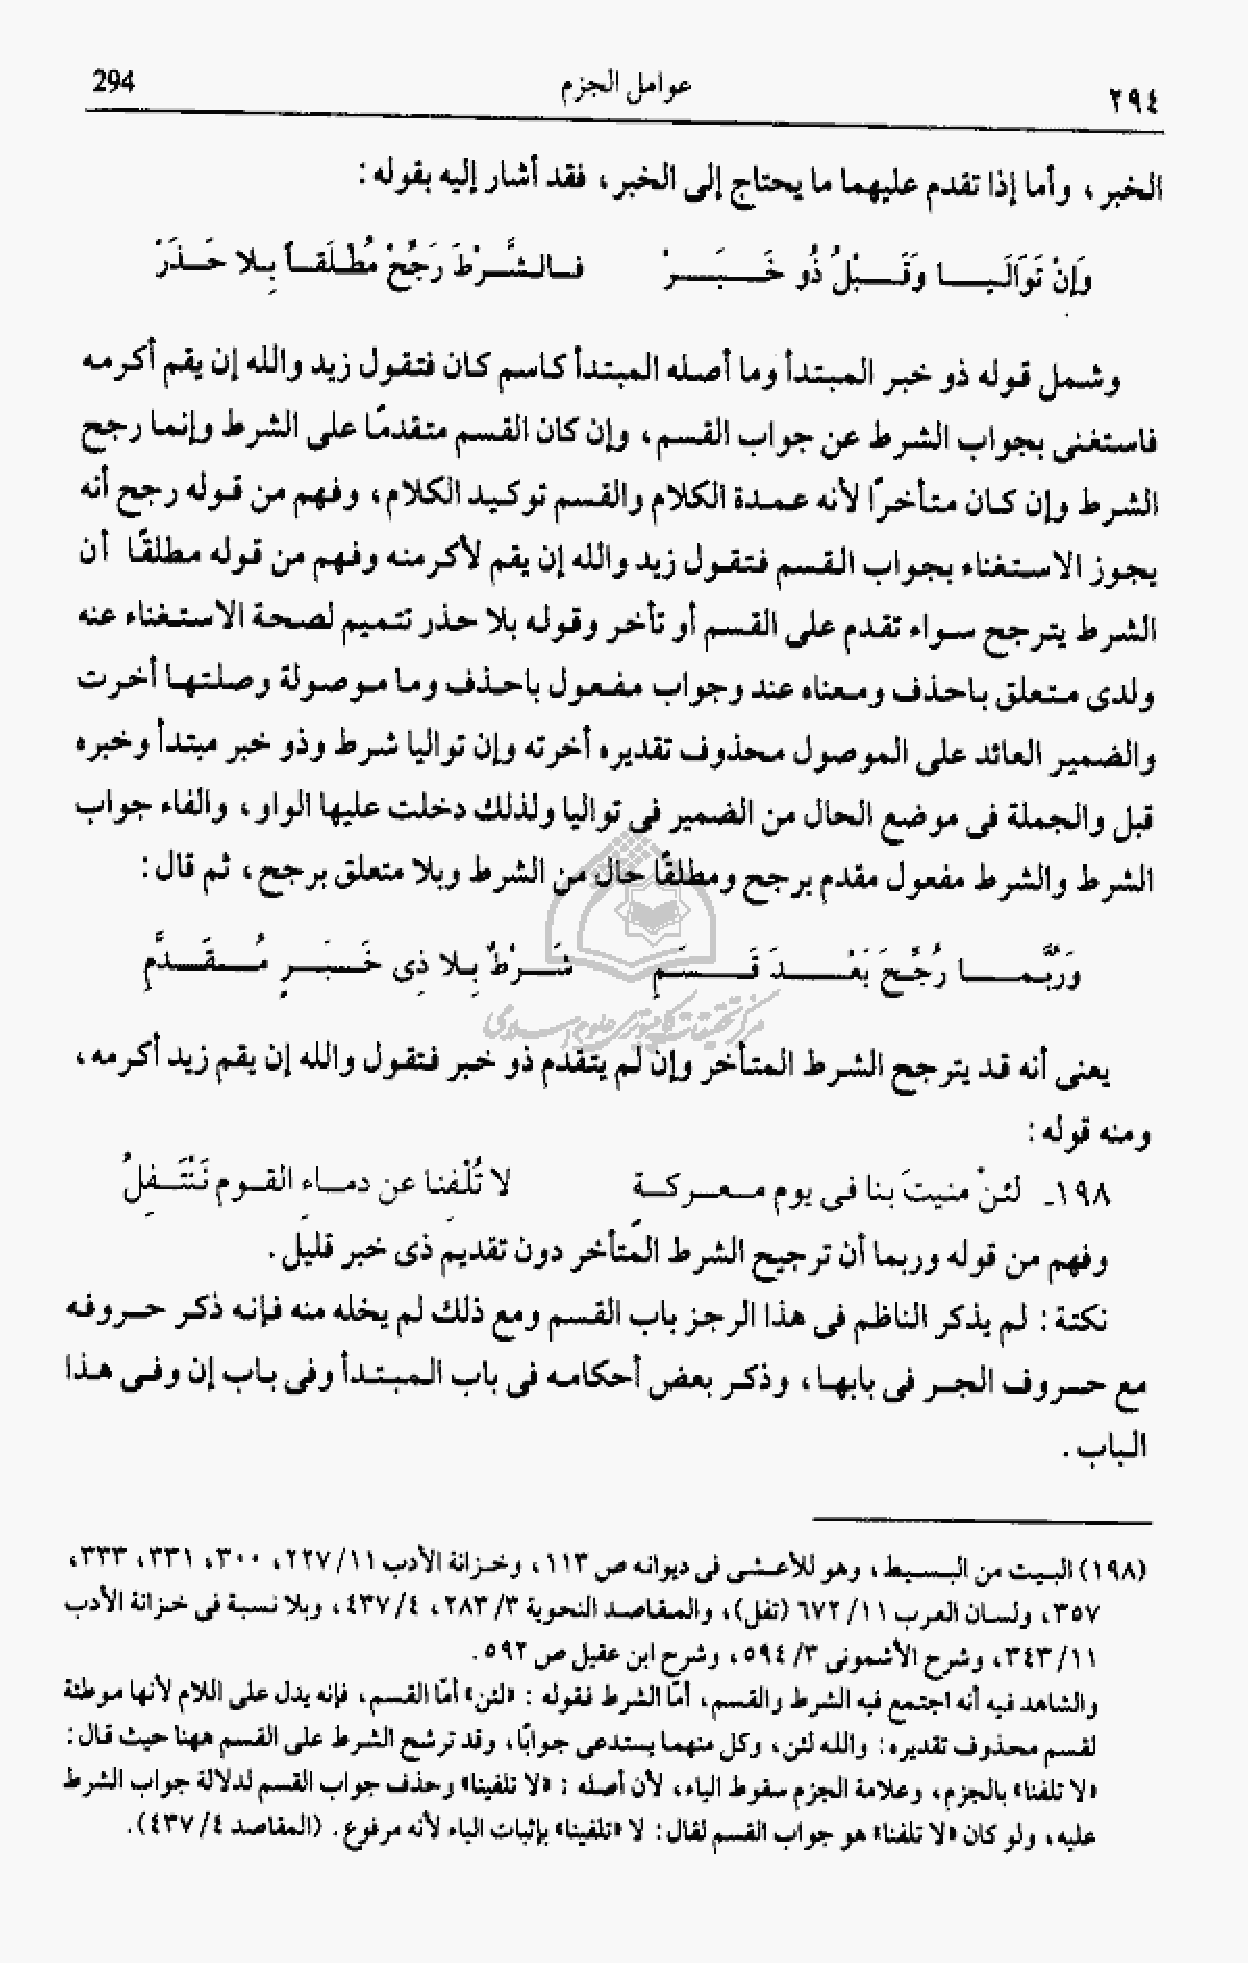 ٢٩٤ عوامل الجزم 294
الخبر ، وأما إذا تقدم عليهما ما يحتاج إلى الخبر ، فقد أشار إليه بقوله :
وَإِنْ تَوَالَيَا وَقَبْلُ ذُو خَبَرْ فَالشَّرْطَ رَجِّحْ مُطْلَقاً بِلا حَذَرْ
وشمل قوله ذو خبر المبتدأ وما أصله المبتدأ كاسم كان فتقول زيد والله إن يقم أكرمه
فاستغنى بجواب الشرط عن جواب القسم ، وإن كان القسم متقدمًا على الشرط وإنما رجح
الشرط وإن كان متأخرًا لأنه عمدة الكلام والقسم توكيد الكلام ، وفهم من قوله رجح أنه
يجوز الاستغناء بجواب القسم فتقول زيد والله إن يقم لأكرمنه وفهم من قوله مطلقًا أن
الشرط يترجح سواء تقدم على القسم أو تأخر وقوله بلا حذر تتميم لصحة الاستغناء عنه
ولدى متعلق باحذف ومعناه عند وجواب مفعول باحذف وما موصولة وصلتها أخرت
والضمير العائد على الموصول محذوف تقديره أخرته وإن تواليا شرط وذو خبر مبتدأ وخبره
قبل والجملة فى موضع الحال من الضمير فى تواليا ولذلك دخلت عليها الواو ، والفاء جواب
الشرط والشرط مفعول مقدم برجح ومطلقًا حال من الشرط وبلا متعلق برجح ، ثم قال :
وَرُبَّمَا رُجِّحَ بَعْدَ قَسَمِ شَرْطٌ بِلا ذِى خَبَرٍ مُقَدَّمِ
مركز تحقيقات كامپيوترى علوم اسلامى
يعنى أنه قد يترجح الشرط المتأخر وإن لم يتقدم ذو خبر فتقول والله إن يقم زيد أكرمه ،
ومنه قوله :
١٩٨ـ لئنْ منيتَ بنا فى يوم معركة لا تُلْفِنا عن دماءِ القوم نَنْتَفِلُ
وفهم من قوله وربما أن ترجيح الشرط المتأخر دون تقديم ذى خبر قليل .
نكتة : لم يذكر الناظم فى هذا الرجز باب القسم ومع ذلك لم يخله منه فإنه ذكر حروفه
مع حروف الجر فى بابها ، وذكر بعض أحكامه فى باب المبتدأ وفى باب إن وفى هذا
الباب .
(١٩٨) البيت من البسيط ، وهو للأعشى فى ديوانه ص ١١٣ ، وخزانة الأدب ١١/ ٢٢٧ ، ٣٠٠ ، ٣٣١ ، ٣٣٣ ،
٣٥٧ ، ولسان العرب ١١/ ٦٧٢ (تفل) ، والمقاصد النحوية ٣/ ٢٨٣ ، ٤/ ٤٣٧ ، وبلا نسبة فى خزانة الأدب
١١/ ٣٤٣ ، وشرح الأشمونى ٣/ ٥٩٤ ، وشرح ابن عقيل ص ٥٩٢ .
والشاهد فيه أنه اجتمع فيه الشرط والقسم ، أمّا الشرط فقوله : «لئن» أمّا القسم ، فإنه يدل على اللام لأنها موطئة
لقسم محذوف تقديره : والله لئن ، وكل منهما يستدعى جوابًا ، وقد ترشح الشرط على القسم ههنا حيث قال :
«لا تلفنا» بالجزم ، وعلامة الجزم سقوط الياء ، لأن أصله : «لا تلفينا» وحذف جواب القسم لدلالة جواب الشرط
عليه ، ولو كان «لا تلفنا» هو جواب القسم لقال : لا «تلفينا» بإثبات الياء لأنه مرفوع . (المقاصد ٤/ ٤٣٧) .